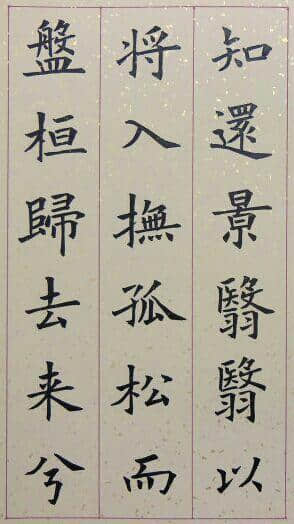 知還景翳翳以
将入撫孤松而
盤桓歸去来兮